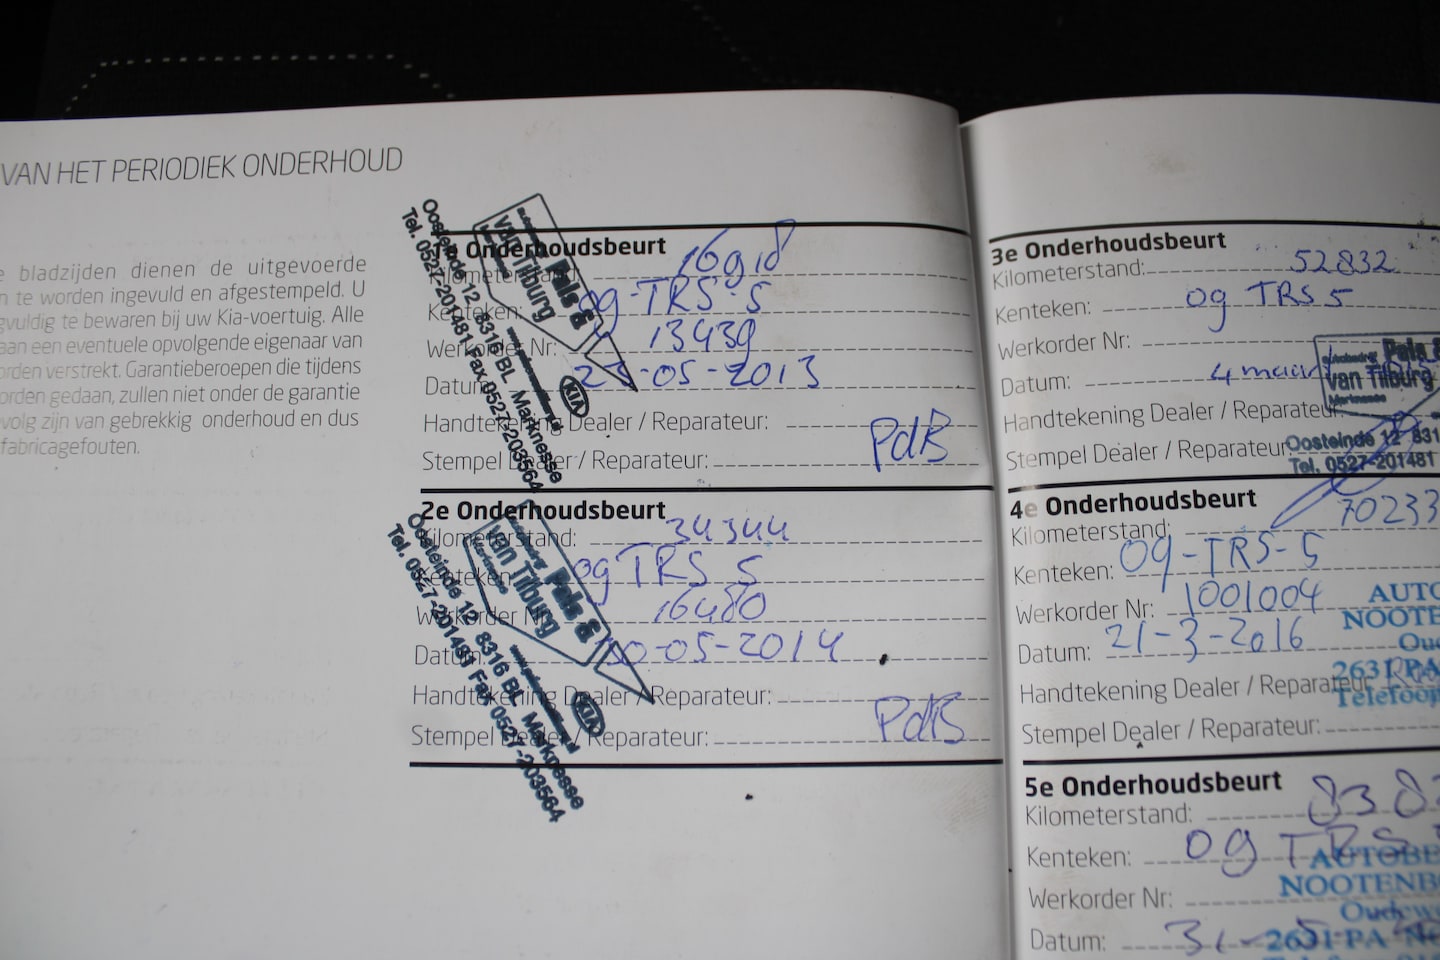 VAN HET PERIODIEK ONDERHOUD
bladzijden dienen de uitgevoerde
te worden ingevuld en afgestempeld. U
te bewaren bij uw Kia-voertuig. Alle
een eventuele opvolgende eigenaar van
verstrekt. Garantieberoepen die tijdens
gedaan, zullen niet onder de garantie
zijn van gebrekkig onderhoud en dus
fabricagefouten.
1e Onderhoudsbeurt
Kilometerstand: 16918
Kenteken: 09-TRS-5
Werkorder Nr: 13439
Datum: -05-2013
Handtekening Dealer / Reparateur:
Stempel Dealer / Reparateur: PdB
Pals &
van Tilburg
Oosteinde 12 8316 BL Marknesse
Tel. 0527-201481 Fax 0527-203564
KIA
2e Onderhoudsbeurt
Kilometerstand: 34344
Kenteken: 09 TRS 5
Werkorder Nr: 16480
Datum: -05-2014
Handtekening Dealer / Reparateur:
Stempel Dealer / Reparateur: PdB
Pals &
van Tilburg
Oosteinde 12 8316 BL Marknesse
Tel. 0527-201481 Fax 0527-203564
KIA
3e Onderhoudsbeurt
Kilometerstand: 52832
Kenteken: 09 TRS 5
Werkorder Nr:
Datum: 4
Handtekening Dealer / Reparateur:
Stempel Dealer / Reparateur:
Pals &
van Tilburg
Marknesse
Oosteinde 12 831
Tel. 0527-201481
4e Onderhoudsbeurt
Kilometerstand: 70233
Kenteken: 09-TRS-5
Werkorder Nr: 1001004
Datum: 21-3-2016
Handtekening Dealer / Reparateur:
Stempel Dealer / Reparateur:
AUTO
NOOTE
Oud
2631 PA
Telefoo
5e Onderhoudsbeurt
Kilometerstand: 838
Kenteken: 09 TRS
Werkorder Nr:
Datum: 31-5-
AUTOBE
NOOTENB
Oudew
2631 PA NO